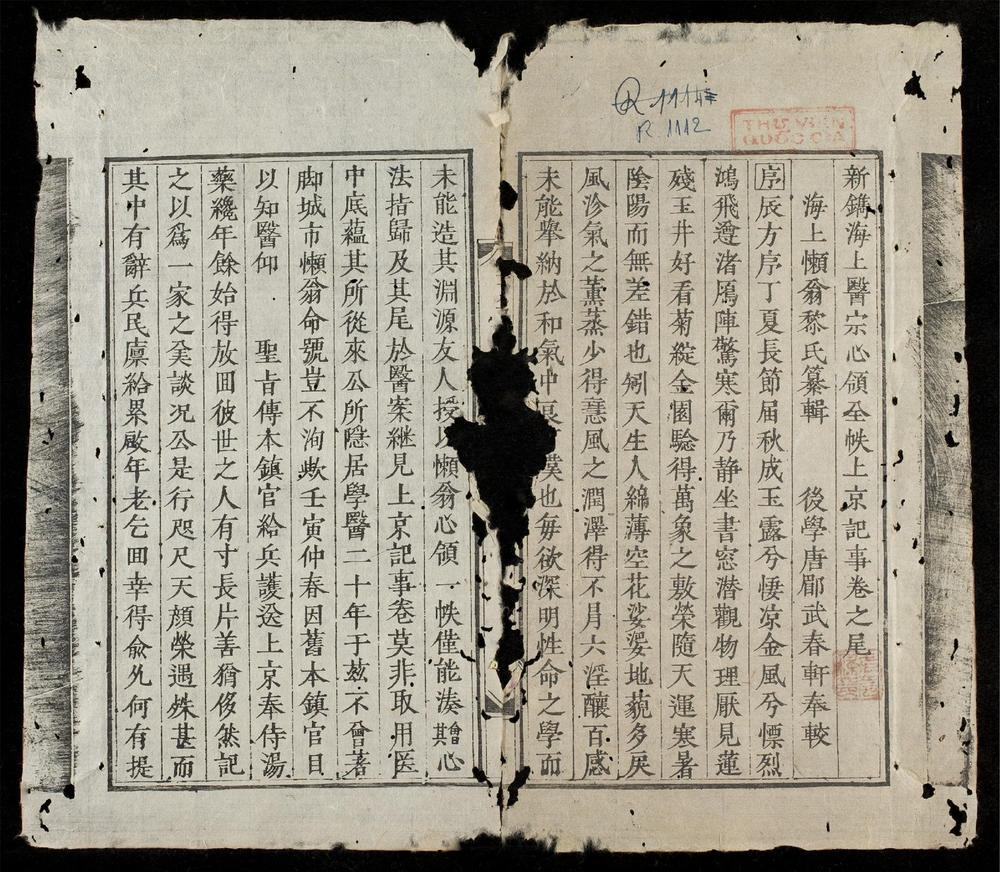 R 1114
R 1112
THƯ VIỆN
QUỐC GIA
新鐫海上醫宗心領全帙上京記事卷之尾
海上懶翁黎氏纂輯 後學唐郿武春軒奉較
序辰方序丁夏長節届秋成玉露兮悽凉金風兮慄烈
鴻飛遵渚鴈陣驚寒爾乃静坐書窓潜觀物理厭見蓮
殘玉井好看菊綻金園騐得萬象之敷榮隨天運寒暑
陰陽而無差錯也矧天生人綿薄空花娑婆地藐多戾
風沴氣之薰蒸少得薏風之潤澤得不月六淫釀百感
未能舉納於和氣中哀 僕也每欲深明性命之學而
未能造其淵源友人授以懶翁心領一帙僅能湊其心
法指歸及其尾於醫案継見上京記事卷莫非取用医
中底蘊其所從來公所隱居學醫二十年于茲不曾著
脚城市懶翁命號豈不洵歟壬寅仲春因舊本鎮官目
以知醫仰 聖旨傳本鎮官給兵護送上京奉侍湯
藥纔年餘始得放田彼世之人有寸長片善猶侈然記
之以爲一家之美談况公是行咫尺天顏榮遇殊甚而
其中有辭兵民廩給累啟年老乞田幸得俞允何有提